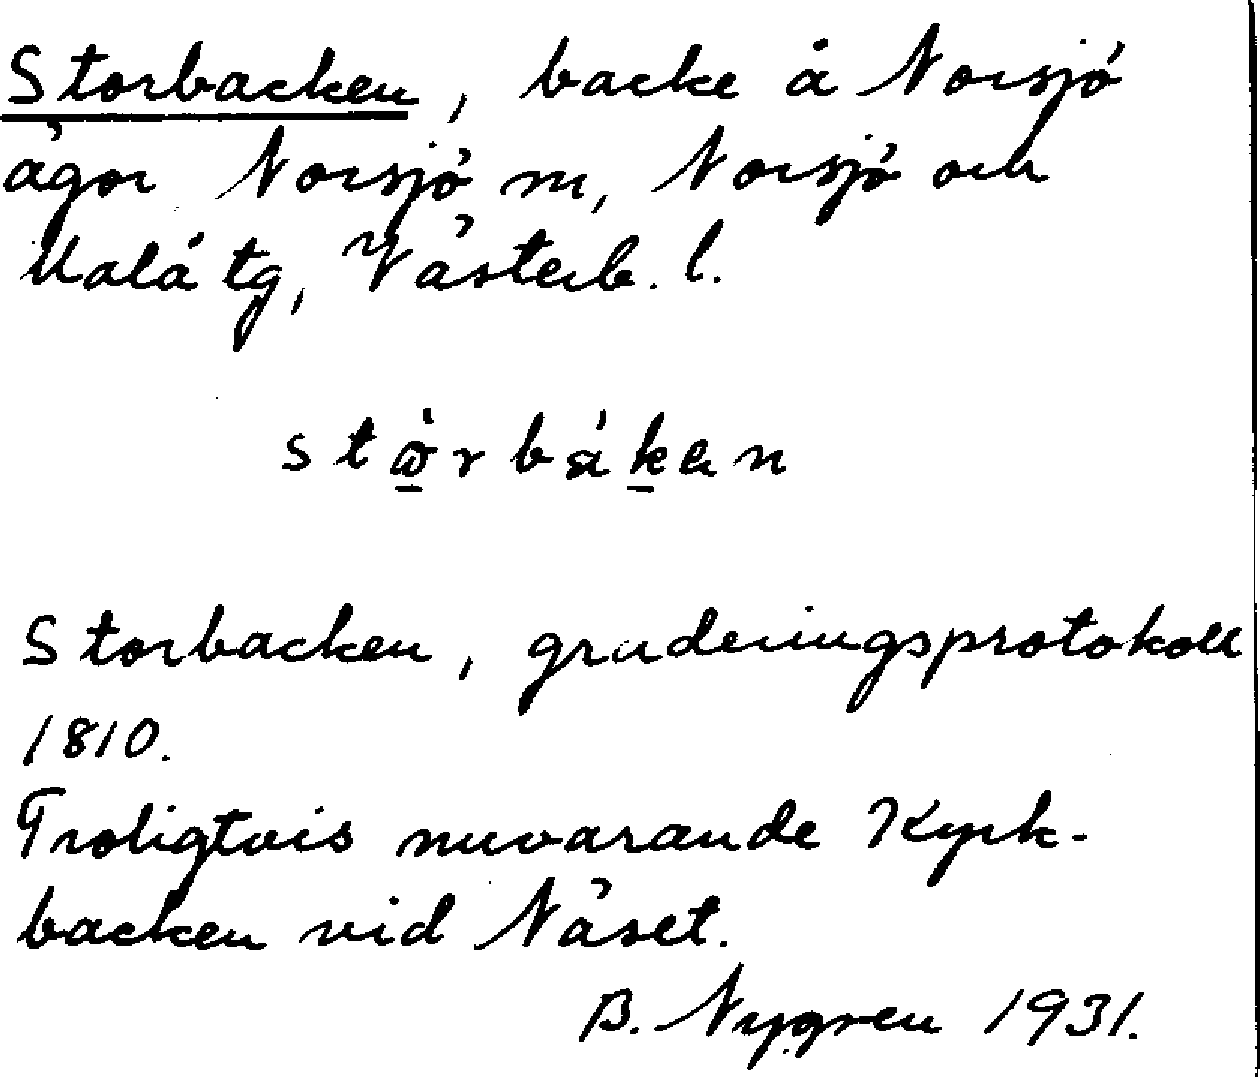 Storbacken, backe å Norsjö
ägor Norsjö m, Norsjö och
Malå tg, Västerb. l.
stὼ̲rbák̲en
Storbacken, graderingsprotokoll
1810.
Troligtvis nuvarande Kyrk-
backen vid Näset.
B. Nygren 1931.